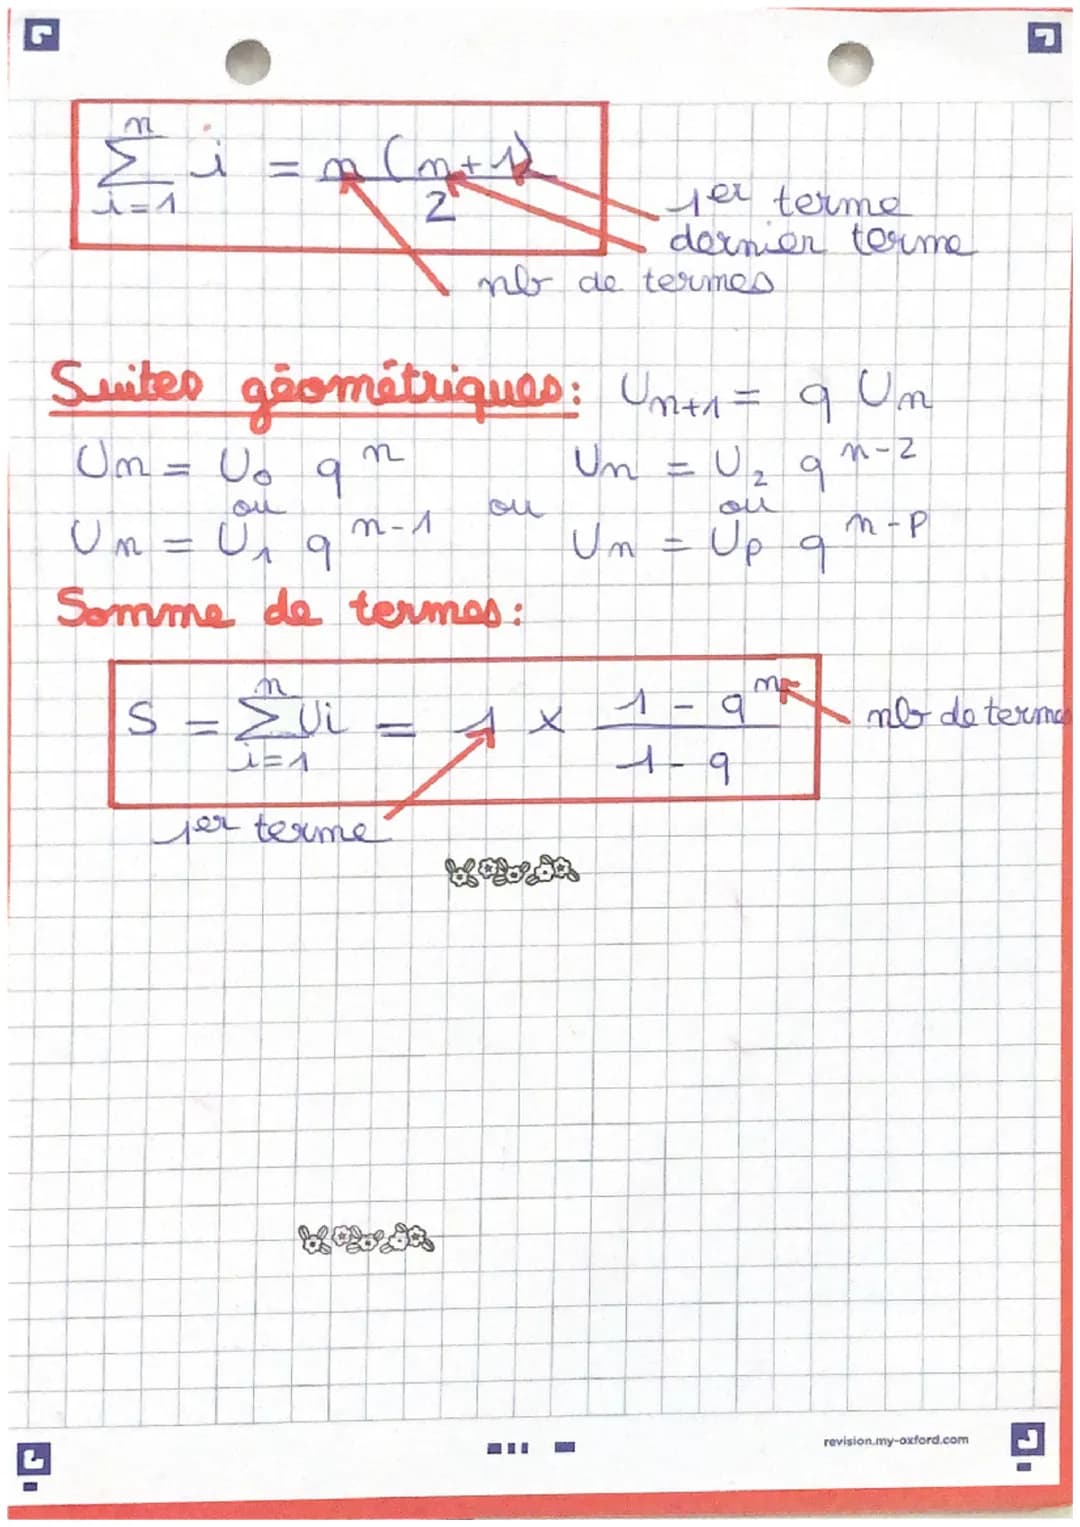 n
∑ i = n (n+1)
i=1 2
1er terme
dernier terme
nb de termes
Suites géométriques: Un+1 = q Un
Un = U0 q^n Un = U2 q^n-2
ou ou ou
Un = U1 q^n-1 Un = Up q^n-p
Somme de termes:
S = n∑i=1 Ui = 1 × 1 - q^n
1 - q
nb de termes
1er terme
revision.my-oxford.com